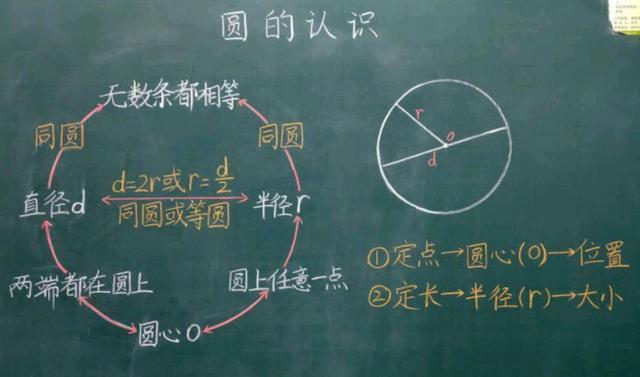 圆的认识
无数条都相等
同圆 同圆
直径d d=2r或r=d/2 半径r
同圆或等圆
两端都在圆上 圆上任意一点
圆心O
r
O
d
①定点→圆心(O)→位置
②定长→半径(r)→大小